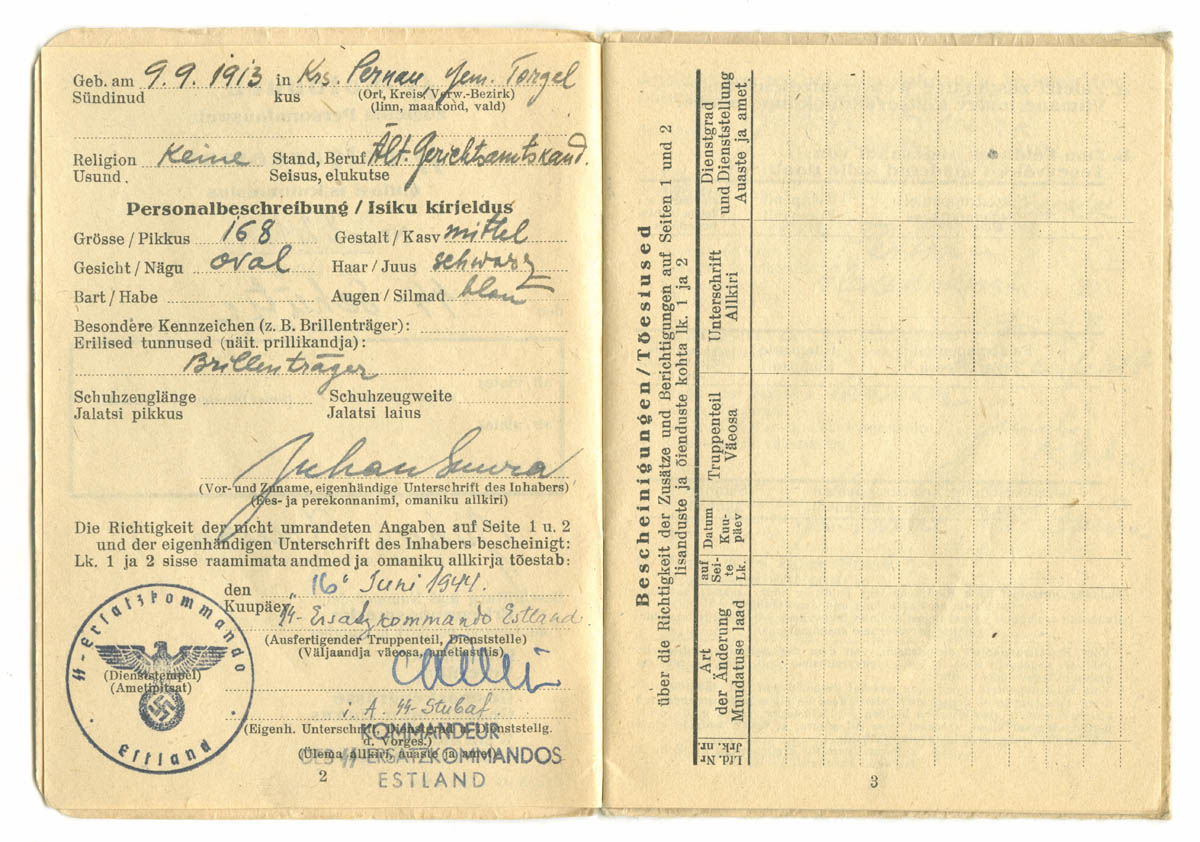 Geb. am 9.9.1913 in Krs. Pernau, Gem. Torgel
Sündinud kus (Ort, Kreis, Verw.-Bezirk)
(linn, maakond, vald)
Religion Keine Stand, Beruf Ält. Gerichtsamtskand.
Usund . Seisus, elukutse
Personalbeschreibung / Isiku kirjeldus
Grösse / Pikkus 168 Gestalt / Kasv mittel
Gesicht / Nägu oval Haar / Juus schwarz
Bart / Habe Augen / Silmad blau
Besondere Kennzeichen (z. B. Brillenträger) :
Erilised tunnused (näit. prillikandja) :
Brillenträger
Schuhzeuglänge Schuhzeugweite
Jalatsi pikkus Jalatsi laius
Juhan
(Vor- und Zuname, eigenhändige Unterschrift des Inhabers)
(Ees- ja perekonnanimi, omaniku allkiri)
Die Richtigkeit der nicht umrandeten Angaben auf Seite 1 u. 2
und der eigenhändigen Unterschrift des Inhabers bescheinigt:
Lk. 1 ja 2 sisse raamimata andmed ja omaniku allkirja tõestab:
den "16" Juni 1944.
Kuupäev
SS-Ersatzkommando Estland
(Ausfertigender Truppenteil, Dienststelle)
(Väljaandja väeosa, ametiasutis)
SS-Ersatzkommando
(Dienststempel)
(Ametipitsat)
Estland
i. A. SS-Stubaf.
(Eigenh. Unterschrift, Dienstgrad u. Dienststellg.
d. Vorges.)
(Ülema allkiri, auaste ja amet)
KOMMANDEUR
DES SS ERSATZKOMMANDOS
ESTLAND
2
Bescheinigungen / Tõesiused
über die Richtigkeit der Zusätze und Berichtigungen auf Seiten 1 und 2
lisanduste ja õienduste kohta lk. 1 ja 2
Lfd. Nr
Jrk. nr.
Art
der Änderung
Muudatuse laad
auf
Sei-
te
Lk.
Datum
Kuu-
päev
Truppenteil
Väeosa
Unterschrift
Allkiri
Dienstgrad
und Dienststellung
Auaste ja amet
3